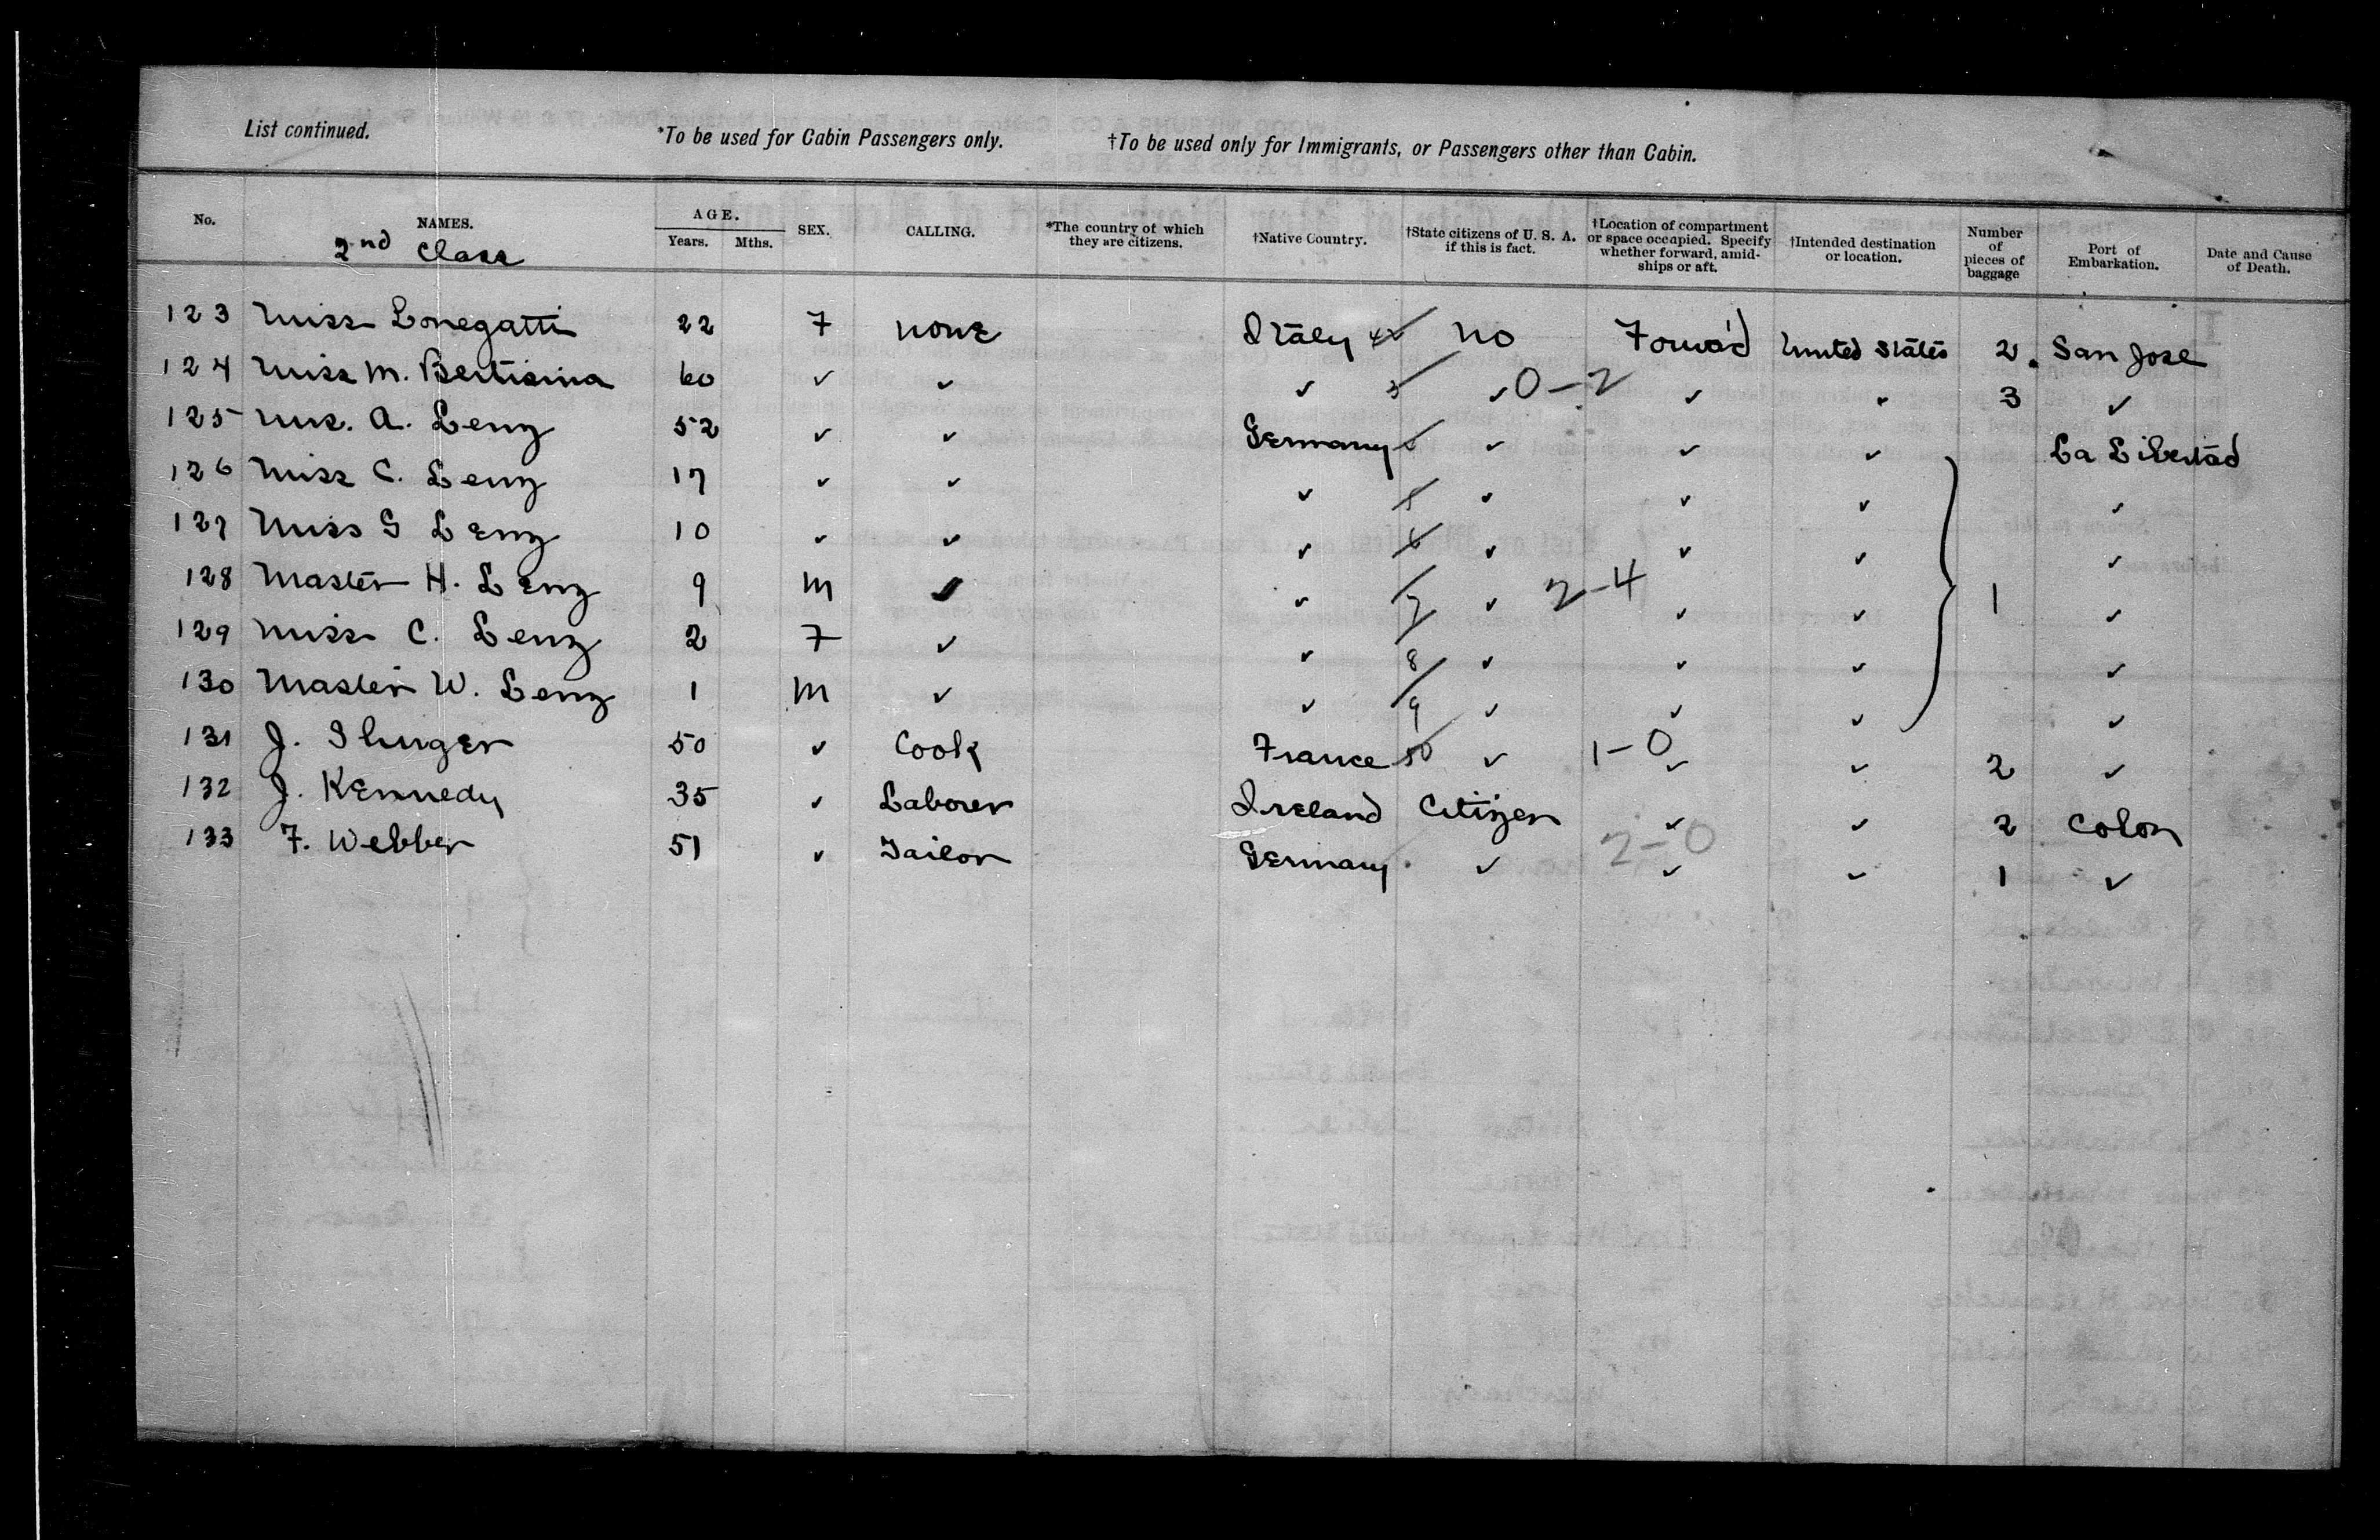 List continued. *To be used for Cabin Passengers only. †To be used only for Immigrants, or Passengers other than Cabin.
No. NAMES. AGE. Years. Mths. SEX. CALLING. *The country of which they are citizens. †Native Country. †State citizens of U. S. A. if this is fact. †Location of compartment or space occupied. Specify whether forward, amidships or aft. †Intended destination or location. Number of pieces of baggage Port of Embarkation. Date and Cause of Death.
2nd Class
123 Miss Lonegatti 22 F None Italy no Forwa'd United States 2 San Jose
124 Miss M. 60 ✓ ✓ ✓ 3 ✓ 0-2 ✓ ✓ 3 ✓
125 A. Lenz 52 ✓ ✓ Germany ✓ ✓ ✓ La Libertad
126 Miss C. Lenz 17 ✓ ✓ ✓ 5 ✓ ✓ ✓ ✓
127 Miss G Lenz 10 ✓ ✓ ✓ 6 ✓ ✓ ✓ ✓
128 Master H. Lenz 9 M ✓ ✓ 7 ✓ 2-4 ✓ ✓ 1 ✓
129 Miss C. Lenz 2 F ✓ ✓ 8 ✓ ✓ ✓ ✓
130 Master W. Lenz 1 M ✓ ✓ 9 ✓ ✓ ✓ ✓
131 J. 50 ✓ Cook France 50 ✓ 1-0 ✓ ✓ 2 ✓
132 J. Kennedy 35 ✓ Laborer Ireland Citizen ✓ ✓ 2 Colon
133 F. Webber 51 ✓ Tailor Germany ✓ 2-0 ✓ ✓ 1 ✓